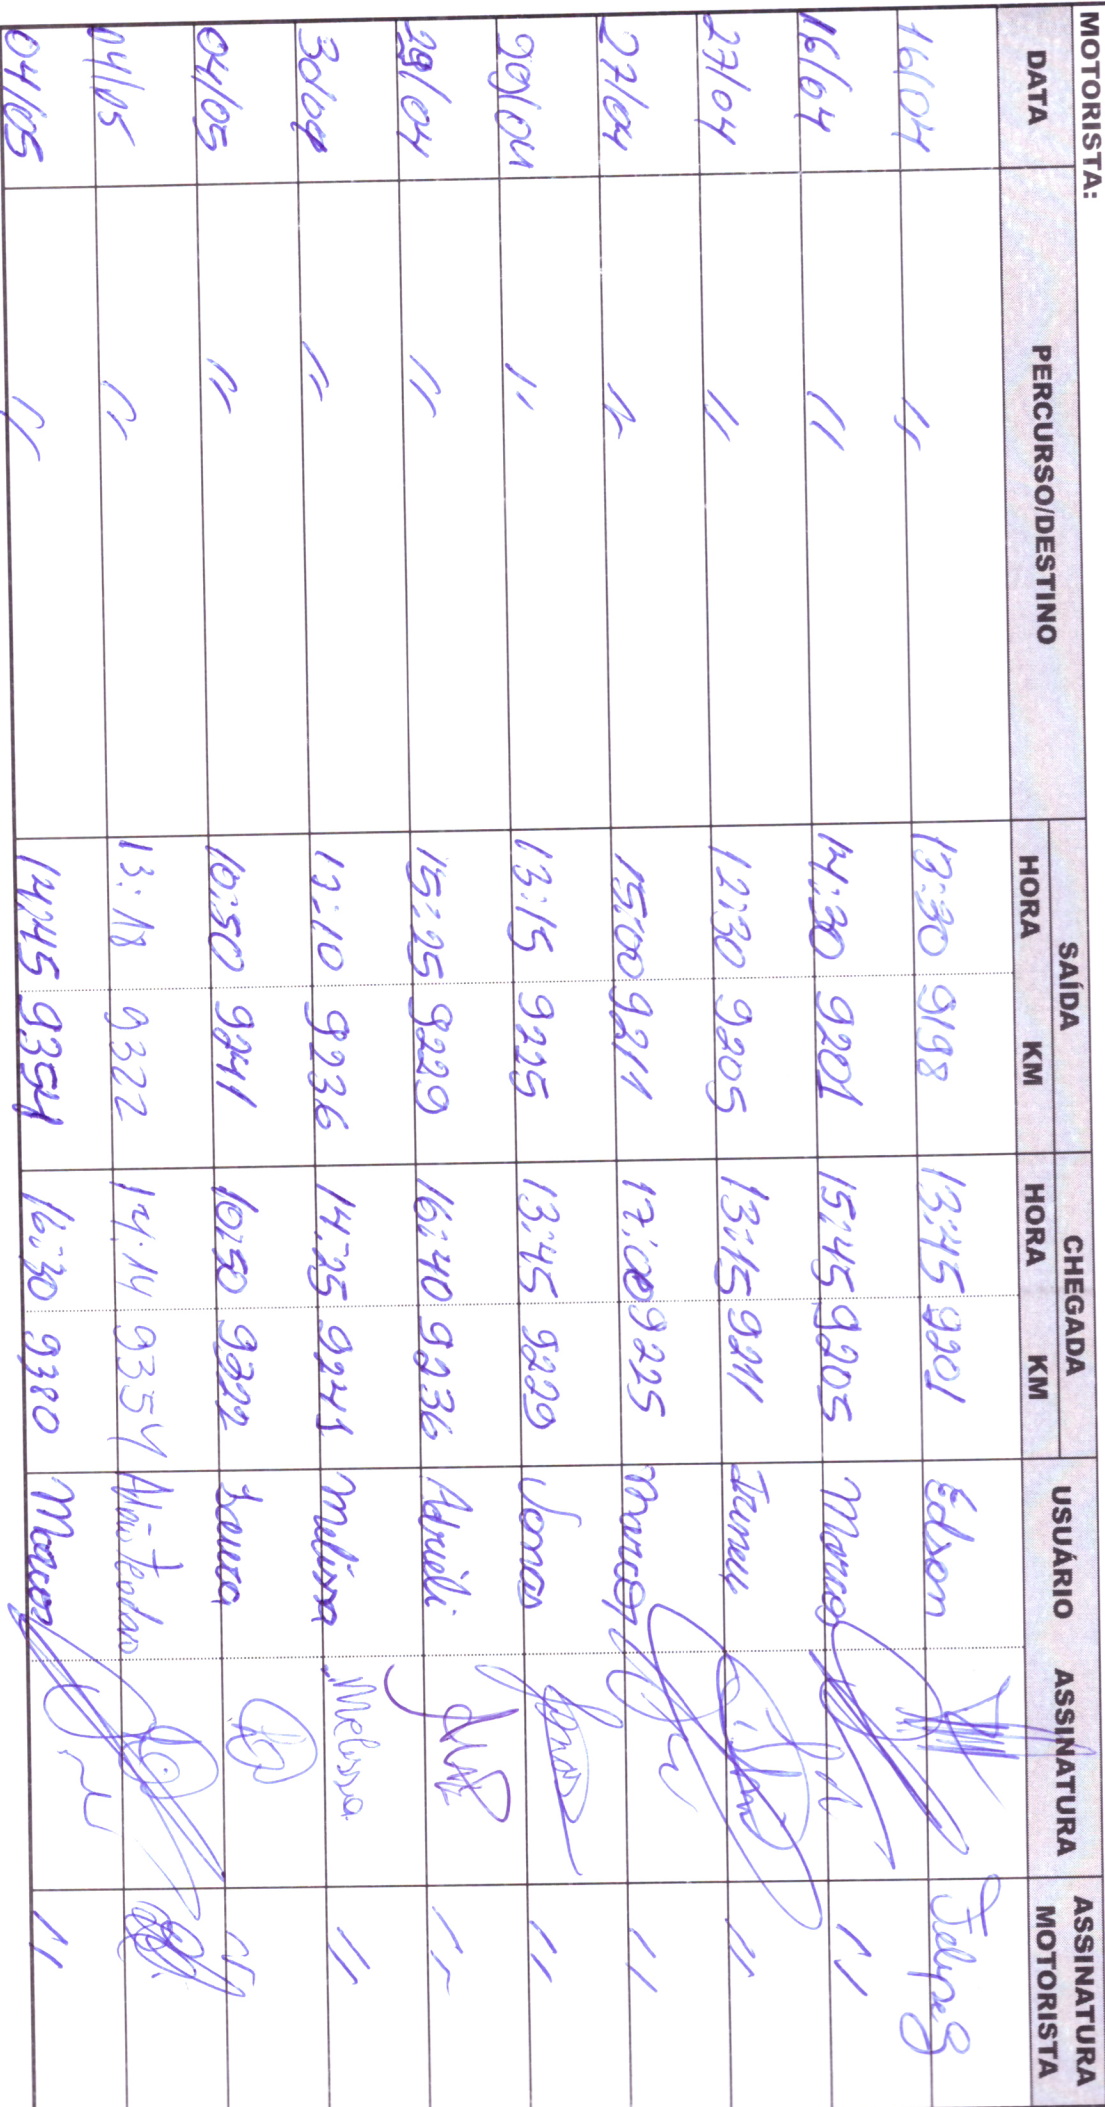 MOTORISTA:
DATA PERCURSO/DESTINO SAÍDA HORA KM CHEGADA HORA KM USUÁRIO ASSINATURA ASSINATURA MOTORISTA
16/04 " 13:30 9198 13:45 9201 Edson Felipe S
16/04 " 14:30 9201 15:45 9205 Marcos "
27/04 " 12:30 9205 13:15 9211 "
27/04 " 15:00 9211 17:00 9225 Marcos "
29/04 " 13:15 9225 13:45 9229 Jonas "
29/04 " 15:25 9229 16:40 9236 "
30/04 " 13:10 9236 14:25 9241 Melissa Melissa "
04/05 " 10:50 9241 10:50 9322 "
04/05 " 13:18 9322 14:14 9354
04/05 " 14:45 9354 16:30 9380 Marcos "